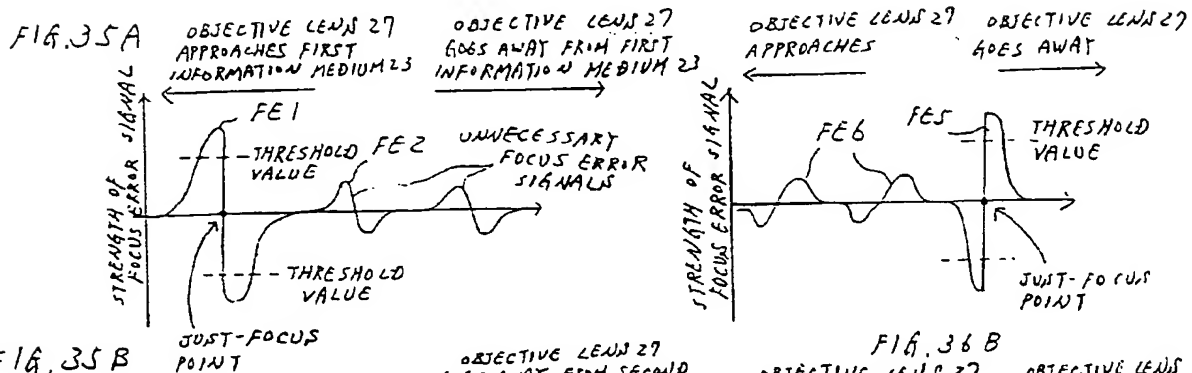 FIG.35A
OBJECTIVE LENS 27
APPROACHES FIRST
INFORMATION MEDIUM 23
OBJECTIVE LENS 27
GOES AWAY FROM FIRST
INFORMATION MEDIUM 23
STRENGTH OF
FOCUS ERROR SIGNAL
FE1
THRESHOLD
VALUE
FE2
UNNECESSARY
FOCUS ERROR
SIGNALS
THRESHOLD
VALUE
JUST-FOCUS
POINT
OBJECTIVE LENS 27
APPROACHES
OBJECTIVE LENS 27
GOES AWAY
STRENGTH OF
FOCUS ERROR SIGNAL
FE6
FE5
THRESHOLD
VALUE
JUST-FOCUS
POINT
FIG.35B
OBJECTIVE LENS 27
AWAY FROM SECOND
FIG.36B
OBJECTIVE LENS 27
OBJECTIVE LENS